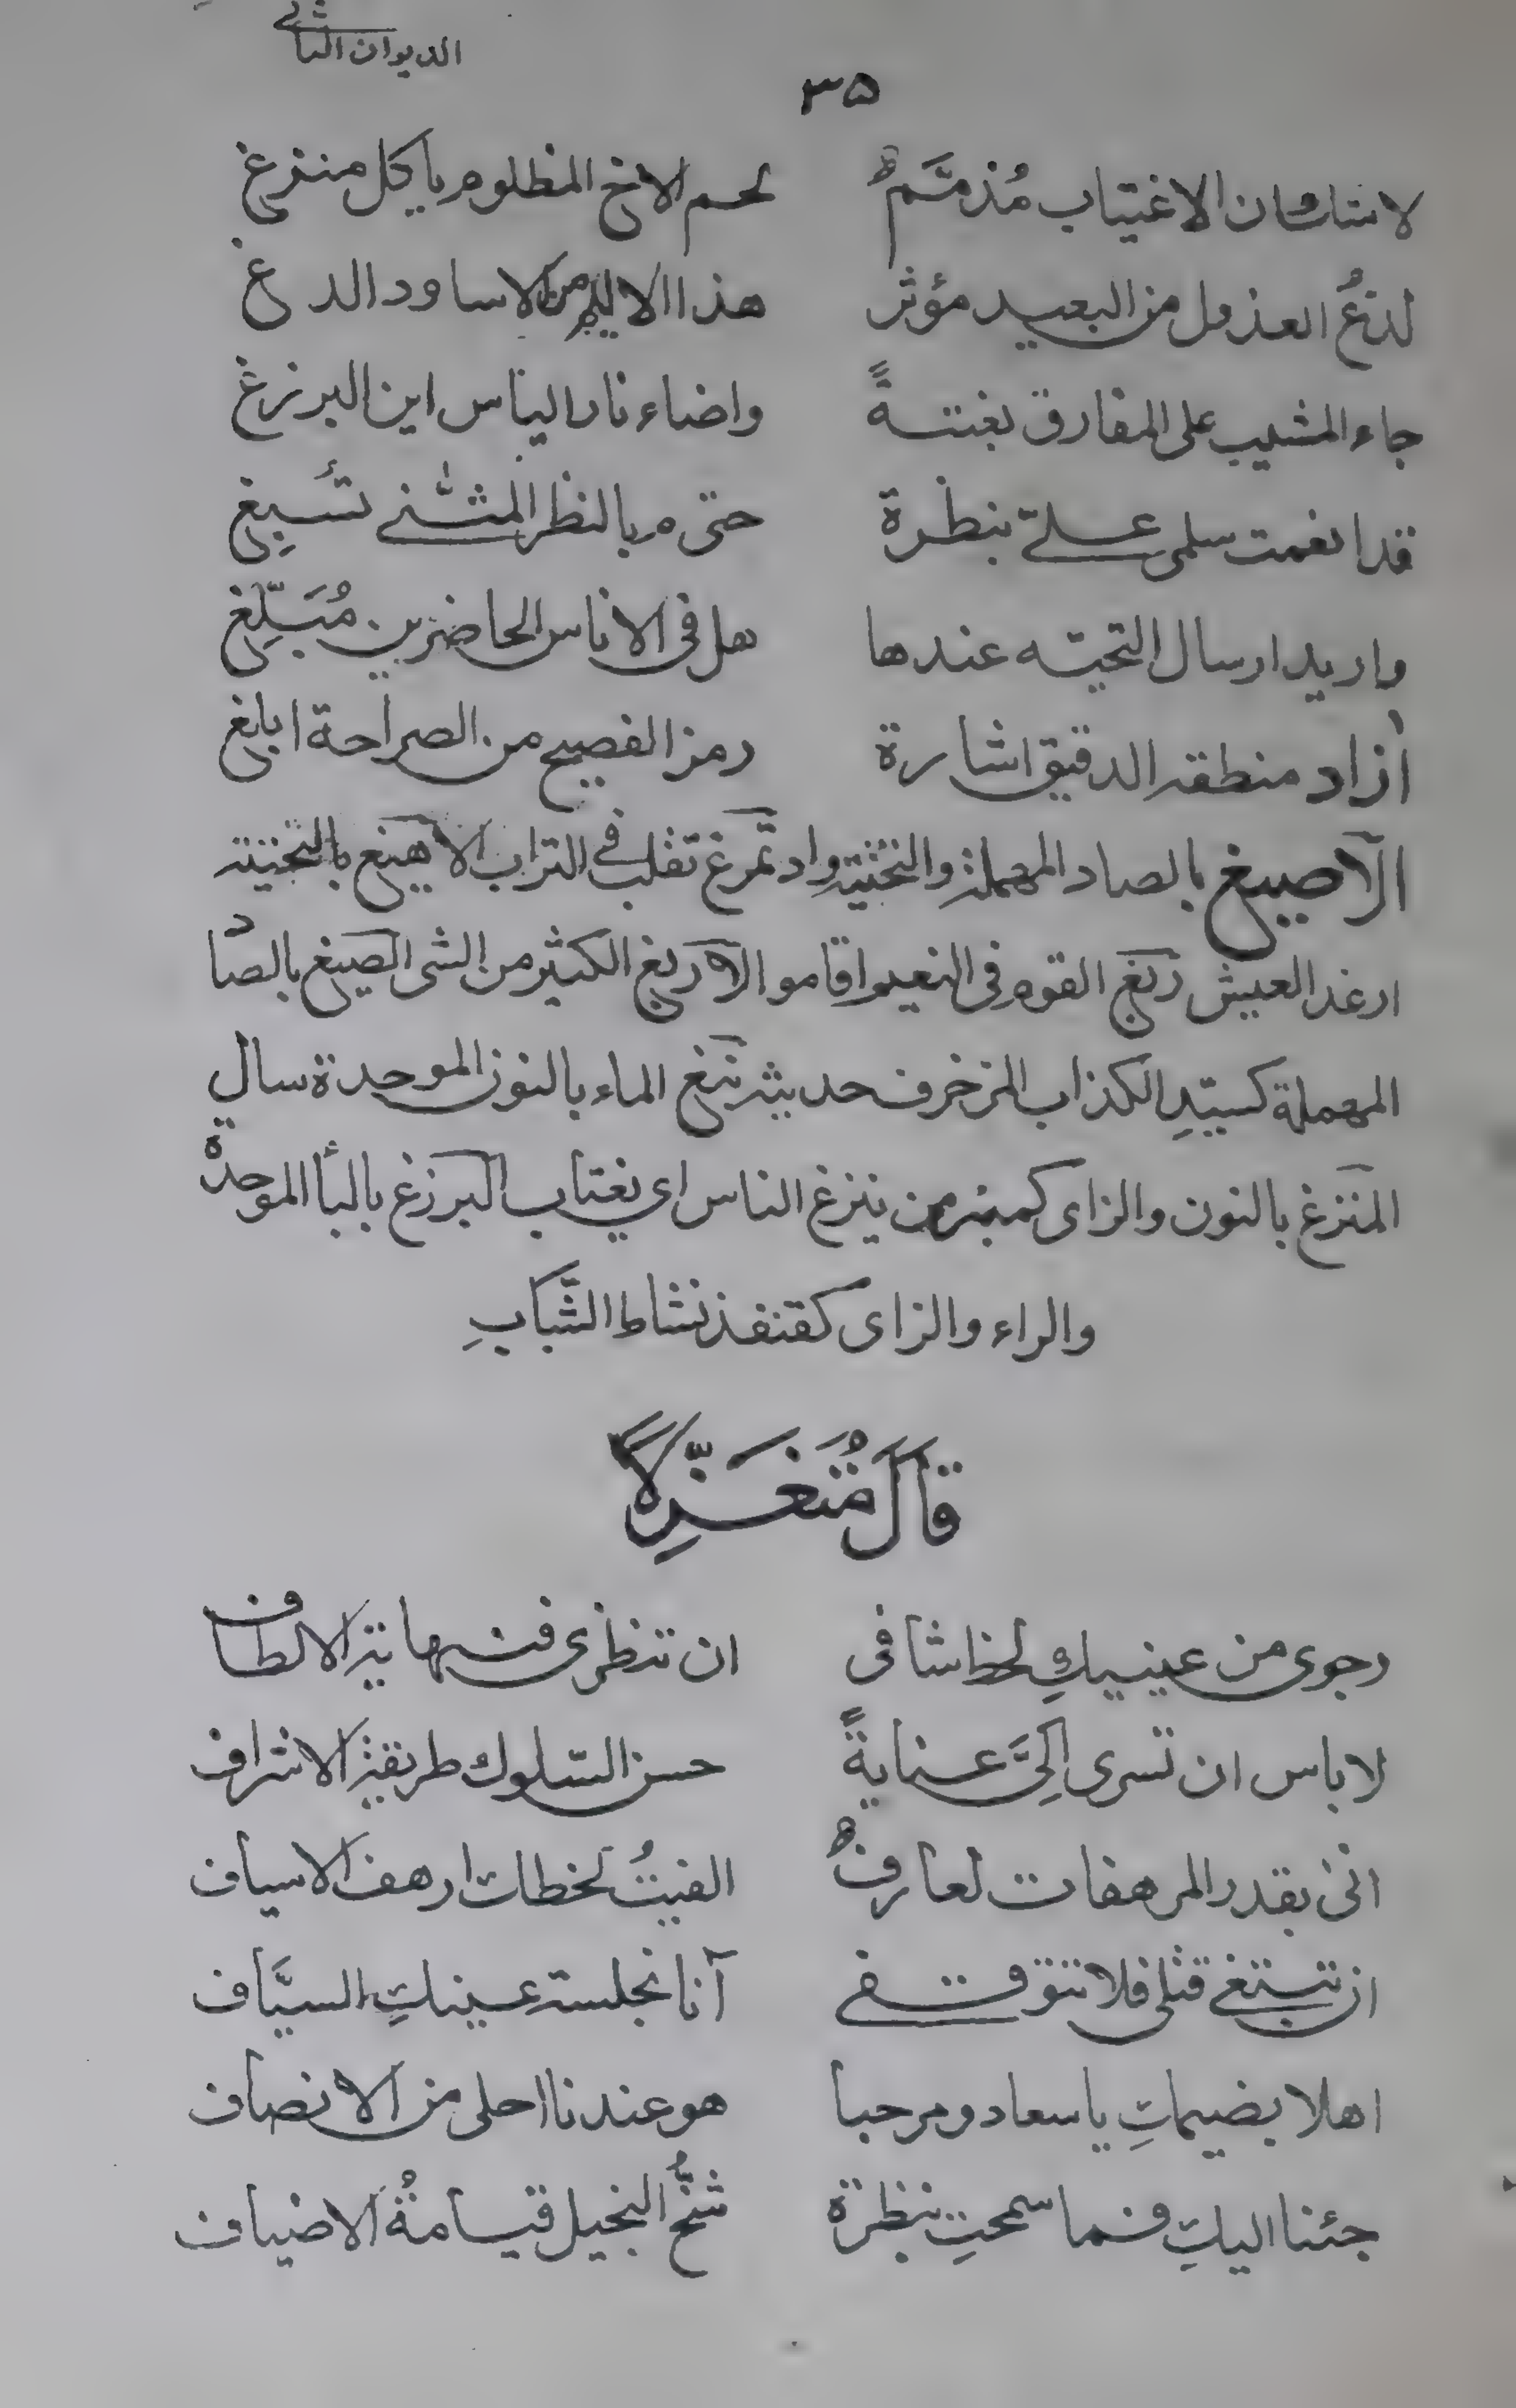 الديوان الثاني
٣٥
لا شك ان الاغتياب مُذمَّمٌ لحم الاخ المظلوم يأكل منزغ
لدغُ العذول من البعيد مؤثر هذا الاليم من الاساود الدغ
جاء المشيب على المفارق بغتةً واضاء نار الياس اين البرزغ
قد انعمت سلمى علىّ بنظرة حتى م بالنظر المثنّى تُسبِغ
واريد ارسال التحيّه عندها هل فى الاناس الحاضرين مُبَلِّغ
أزاد منطقه الدقيق اشارة رمز الفصيح من الصراحة ابلغ
الآصيغ بالصاد المهملة والتحتية واد تمّرغ تقلب فى التراب الاهيغ بالتحتية
ارغد العيش ربغ القوم فى النعيم اقاموا الاربغ الكثير من الشى الصيغ بالصاد
المهملة كسيّدِ الكذاب المزخرف حديثه نبغ الماء بالنون الموحدة سال
المنزغ بالنون والزاى كمنبر من ينزغ الناس اى يغتاب البرزغ بالبأ الموحدة
والراء والزاى كقنفذ نشاط الشَّبابِ
قَالَ مُتَغَزِّلًا
رجوى من عينيكِ لحظ شافى ان تنظرى فنهاية الالطاف
لا باس ان تسرى اِلىَّ عنايةً حسن السّلوك طريقة الاشراف
انى بقدر المرهفات لعارفٌ الفيتُ لحظات ارهف الاسياف
ان تبتغى قتلى فلا تتوقفى آنا نجلسة عينكِ السيَّاف
اهلا بضيمكِ يا سعاد ومرحبا هو عندنا احلى من الانصاف
جئنا اليكِ فما سمحتِ بنظرة شحُّ البخيل قيامةُ الاضياف